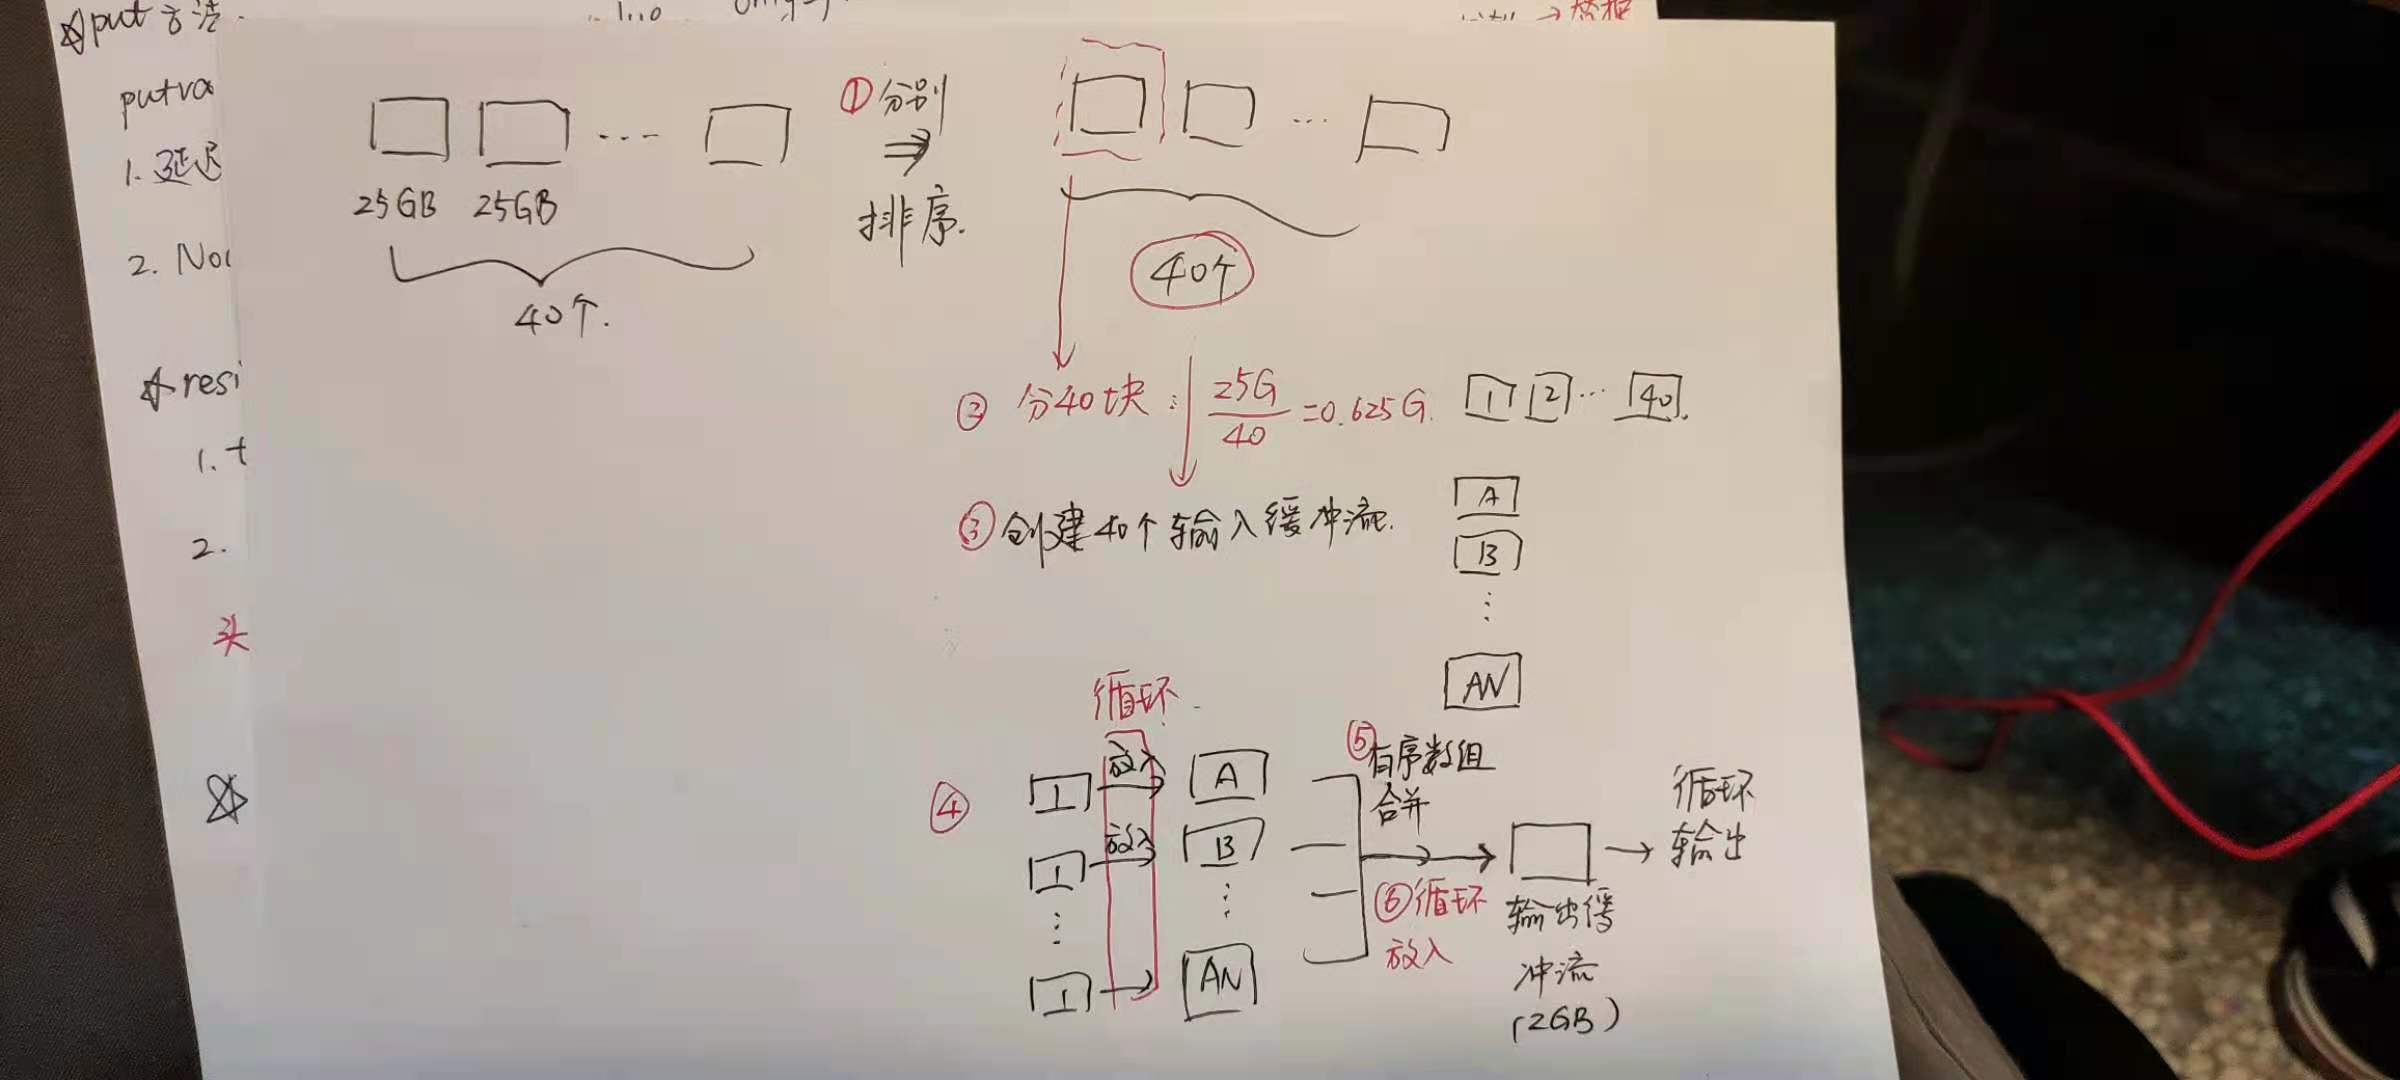 ☆put方法.
putva
1. 延迟
2. Nou
☆resi
1. t
2.
头
25GB 25GB
40个.
①分别
⇒
排序.
40个
② 分40块: 25G/40 =0.625G. 1 2 … 40.
③创建40个输入缓冲流.
A
B
⋮
AN
循环
④
1 放入→ A
1 放入→ B
⋮ ⋮
1 → AN
⑤有序数组
合并
⑥循环
放入
输出缓
冲流
(2GB)
循环
输出